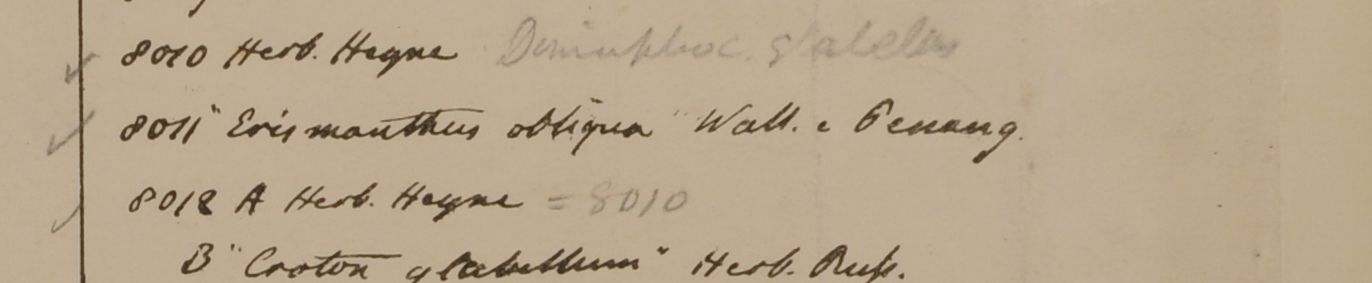 8010 Herb. Heyne
8011 "Erismanthus obliqua" Wall. e Penang.
8012 A Herb. Heyne = 8010
B "Croton glabellum" Herb. Russ.